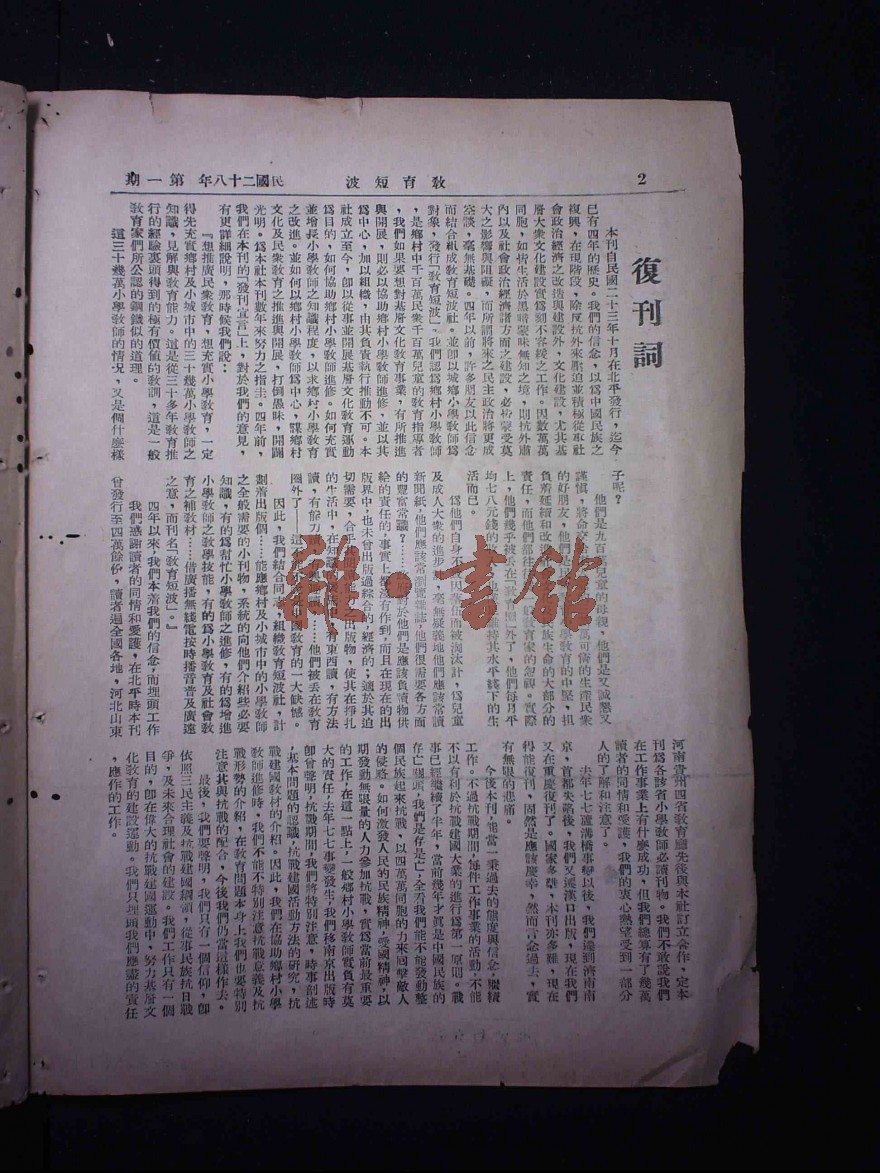 2
教育短波
民國二十八年 第一期
復刊詞
本刊自民國二十三年十月在北平發行，迄今，
已有四年的歷史。我們的信念，以爲中國民族之
復興，在現階段，除反抗外來壓迫並積極從事社
會政治經濟之改造與建設外，文化建設，尤其基
層大衆文化建設實爲刻不容緩之工作。因數萬萬
同胞，如皆生活於黑暗蒙昧無知之境，則抗外肅
內以及社會政治經濟諸方面之建設，必皆蒙受莫
大之影響與阻礙，而所謂將來之民主政治將更成
空談，毫無基礎。四年以前，許多朋友以此信念
而結合組成教育短波社。並卽以城鄉小學教師爲
對象，發行「教育短波」。我們認爲鄉村小學教師
，是鄉村中千百萬民衆千百萬兒童的教育指導者
，我們如果要想對基層文化教育事業，有所推進
與開展，則必以協助鄉村小學教師進修，並以其
爲中心，加以組織，由其負責執行推動不可。本
社成立至今，卽以從事並開展基層文化教育運動
爲目的，如何協助鄉村小學教師進修。如何充實
並增長小學教師之知識程度，以求鄉村小學教育
之改進。並如何以鄉村小學教師爲中心，謀鄉村
文化及民衆教育之推進與開展，打倒愚昧，開闢
光明。爲本社本刊數年來努力之指圭。四年前，
我們在本刊的「發刊宣言」上，對於我們的意見，
有更詳細說明，那時候我們說：
『想推廣民衆教育，想充實小學教育，一定
得先充實鄉村及小城市中的三十幾萬小學教師之
知識，見解與教育能力。這是從三十多年教育推
行的經驗裏頭得到的極有價值的教訓，這是一般
教育家們所公認的鋼鐵似的道理。
這三十幾萬小學教師的情況，又是個什麽樣
子呢？
他們是九百萬兒童的母親，他們是又誠懇又
謹慎，將命
萬可憐的生產民衆
的好朋友，他們是
學教育的中堅，担
負着延續和改
族生命的大部分的
責任，而他們都往
般教育家的忽視。實際
上，他們幾乎被丟在「教育圈」外了，他們每月平
均七八元錢的
維持其水平綫下的生
活而已。
爲他們自身不致因落伍而被淘汰計，爲兒童
及成人大衆的進步
毫無疑義地他們應該常讀
新聞紙，他們應該常瀏覽雜誌，他們很需要各方面
的豐富常識？
對於他們是應該負責物供
給的責任的，事實上
沒有作到，而且在現在的出
版界中，也未曾出版過綜合的，經濟的；適於其迫
切需要，合乎
出版物，使其在掙扎
的生活中，在知識的
有東西讀，有方法
讀，有能力讀，有興
讀……他們被丟在教育
圈外了——這
中國教育的一大缺憾。
因此，我們結合同志，組織教育短波社，計
劃着出版個……能應鄉村及小城市中的小學教師
之全般需要的小刊物，系統的向他們介紹些必要
知識，有的爲幫忙小學教師之進修，有的爲增進
小學教師之教學技能，有的爲小學教育及社會教
育之補教材……借廣播無綫電按時播音普及廣遠
之意，而刊名「教育短波」。』
四年以來，我們本着我們的信念，而埋頭工作
。我們感謝讀者的同情和愛護，在北平時本刊
曾發行至四萬餘份，讀者遍全國各地，河北山東
河南貴州四省教育廳先後與本社訂立合作，定本
刊爲各該省小學教師必讀刊物。我們不敢說我們
在工作事業上有什麽成功，但我們總算有了幾萬
讀者的同情和愛護，我們的衷心熱望受到一部分
人的了解和注意了。
去年七七蘆溝橋事變以後，我們遷到濟南南
京，首都失陷後，我們又遷漢口出版，現在我們
又在重慶復刊了。國家多難，本刊亦多難，現在
得能復刊，固然是應該慶幸，然而言念過去，實
有無限的悲痛。
今後本刊，能當一秉過去的態度與信念，繼續
工作。不過抗戰期間，每件工作事業的活動，不能
不以有利於抗戰建國大業的進行爲第一原則。戰
事已經繼續了半年，當前幾年才眞是中國民族的
存亡關頭，我們是存是亡，全看我們能不能發動整
個民族起來抗戰，以四萬萬同胞的力來回擊敵人
的侵略。如何激發人民的民族精神，愛國精神，以
期發動無限量的人力參加抗戰，實爲當前最重要
的工作，在這一點上，一般鄉村小學教師實負有莫
大的責任。去年七七事變發生，我們移南京出版時
卽曾聲明，抗戰期間，我們將特別注意，時事剖述
，基本問題的認識，抗戰建國活動方法的研究，抗
戰建國教材的介紹。因此，我們在協助鄉村小學
教師進修時，我們不能不特別注意抗戰意義及抗
戰形勢的介紹，在教育問題本身上我們也要特別
注意其與抗戰的配合，今後我們仍當這樣作去。
最後，我們要聲明，我們只有一個信仰，卽
依照三民主義及抗戰建國綱領，從事民族抗日戰
爭，及未來合理社會的建設。我們工作只有一個
目的，卽在偉大的抗戰建國運動中，努力基層文
化教育的建設運動。我們只埋頭我們應盡的責任
，應作的工作。
雜·書館